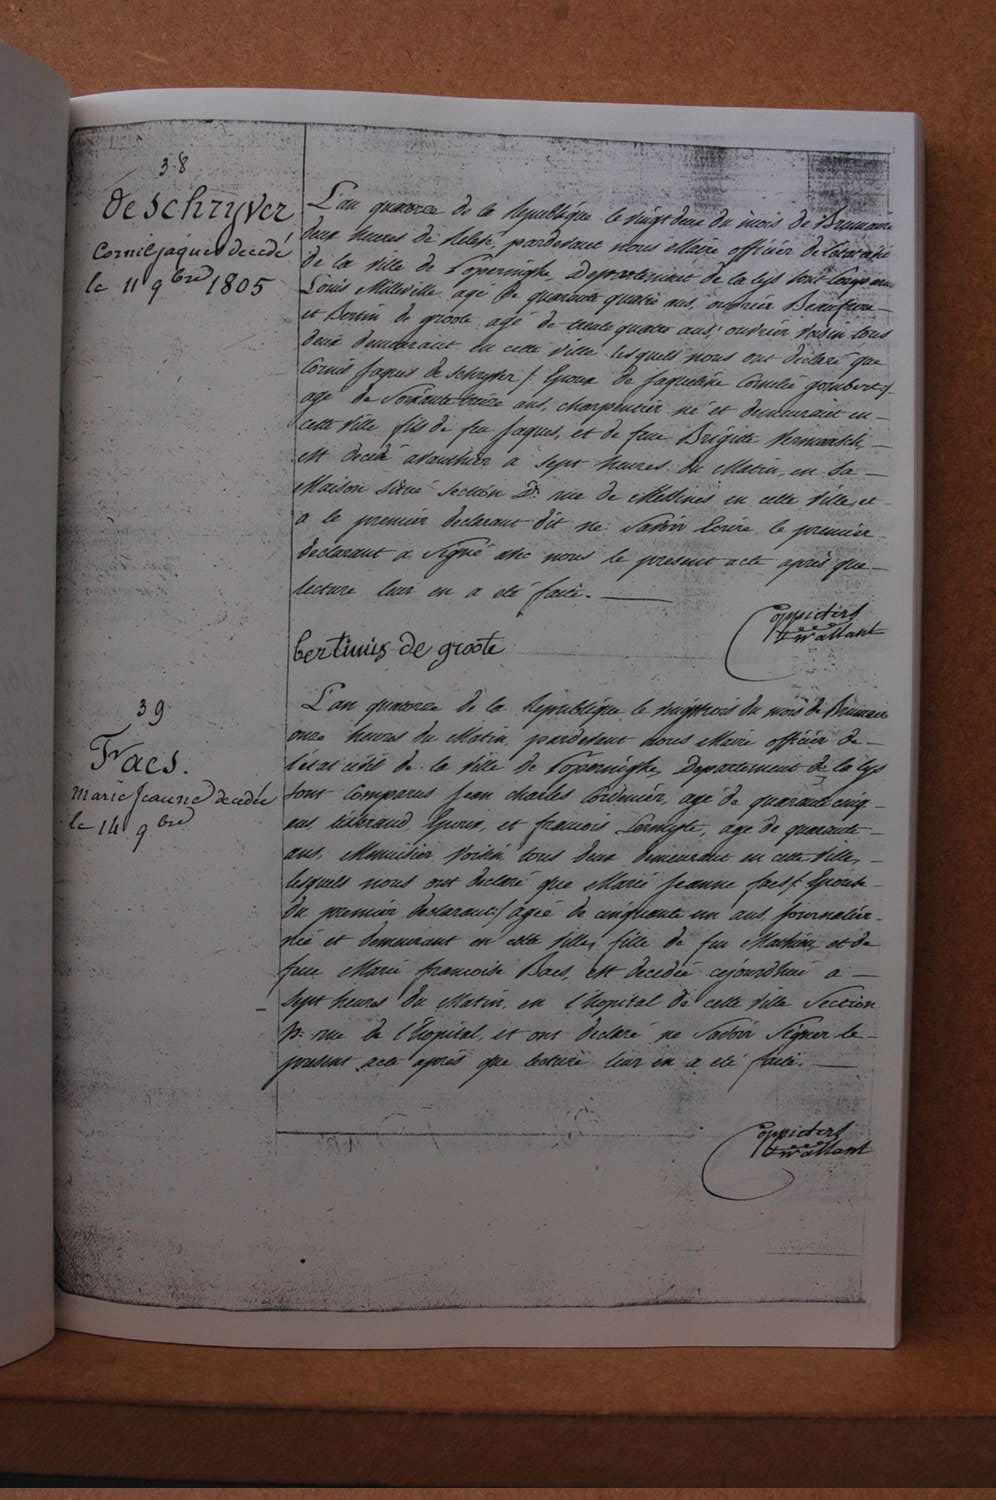 38
de Schryver
Cornil jaques decedé
le 11 9bre 1805
L'an quatorze de la Republique le vingt deux du mois de Brumaire
deux heures de Relevé, pardevant nous Maire officier de l'etat civil
de la ville de Poperinghe, Departement de la Lys sont comparus
Louis Milleville agé de quarante quatre ans, ouvrier Beaufrere
et Bertin de groote agé de trente quatre ans, ouvrier Voisin tous
deux demeurant en cette ville lesquels nous ont declaré que
Cornil Jaques de Schryver / Epoux de Jaqueline Cornilie gombert /
agé de Soixante treize ans, charpentier né et demeurant en
cette ville fils de feu Jaques, et de feue Brigitte
est decedé avanthier a sept heures du Matin, en sa
Maison située Section D: rue de Messines en cette ville, et
a le premier declarant dit ne Savoir Ecrire le premier
declarant a Signé avec nous le present acte après que
lecture leur en a eté faite.
Coppieters
Wallant
bertinus de groote
39
Faes.
Marie Jeanne decedée
le 14 9bre
L'an quatorze de la Republique le vingttrois du mois de Brumaire
onze heures du Matin, pardevant nous Maire officier de
l'état civil de la ville de Poperinghe, Departement de la Lys
sont comparus Jean Charles Cordenier, agé de quarante cinq
ans, Epoux, et francois agé de quarante
ans, Menuisier Voisin tous deux demeurant en cette ville,
lesquels nous ont declaré que Marie Jeanne faes / Epouse
du premier declarant / agée de cinquante un ans, journalier
née et demeurant en cette ville, fille de feu Martin, et de
feue Marie francoise Baes, est decedée cejourdhui a
Sept heures du Matin, en l'hopital de cette ville Section
rue de l'hopital, et ont declaré ne Savoir Signer le
present acte après que lecture leur en a eté faite.
Coppieters
Wallant